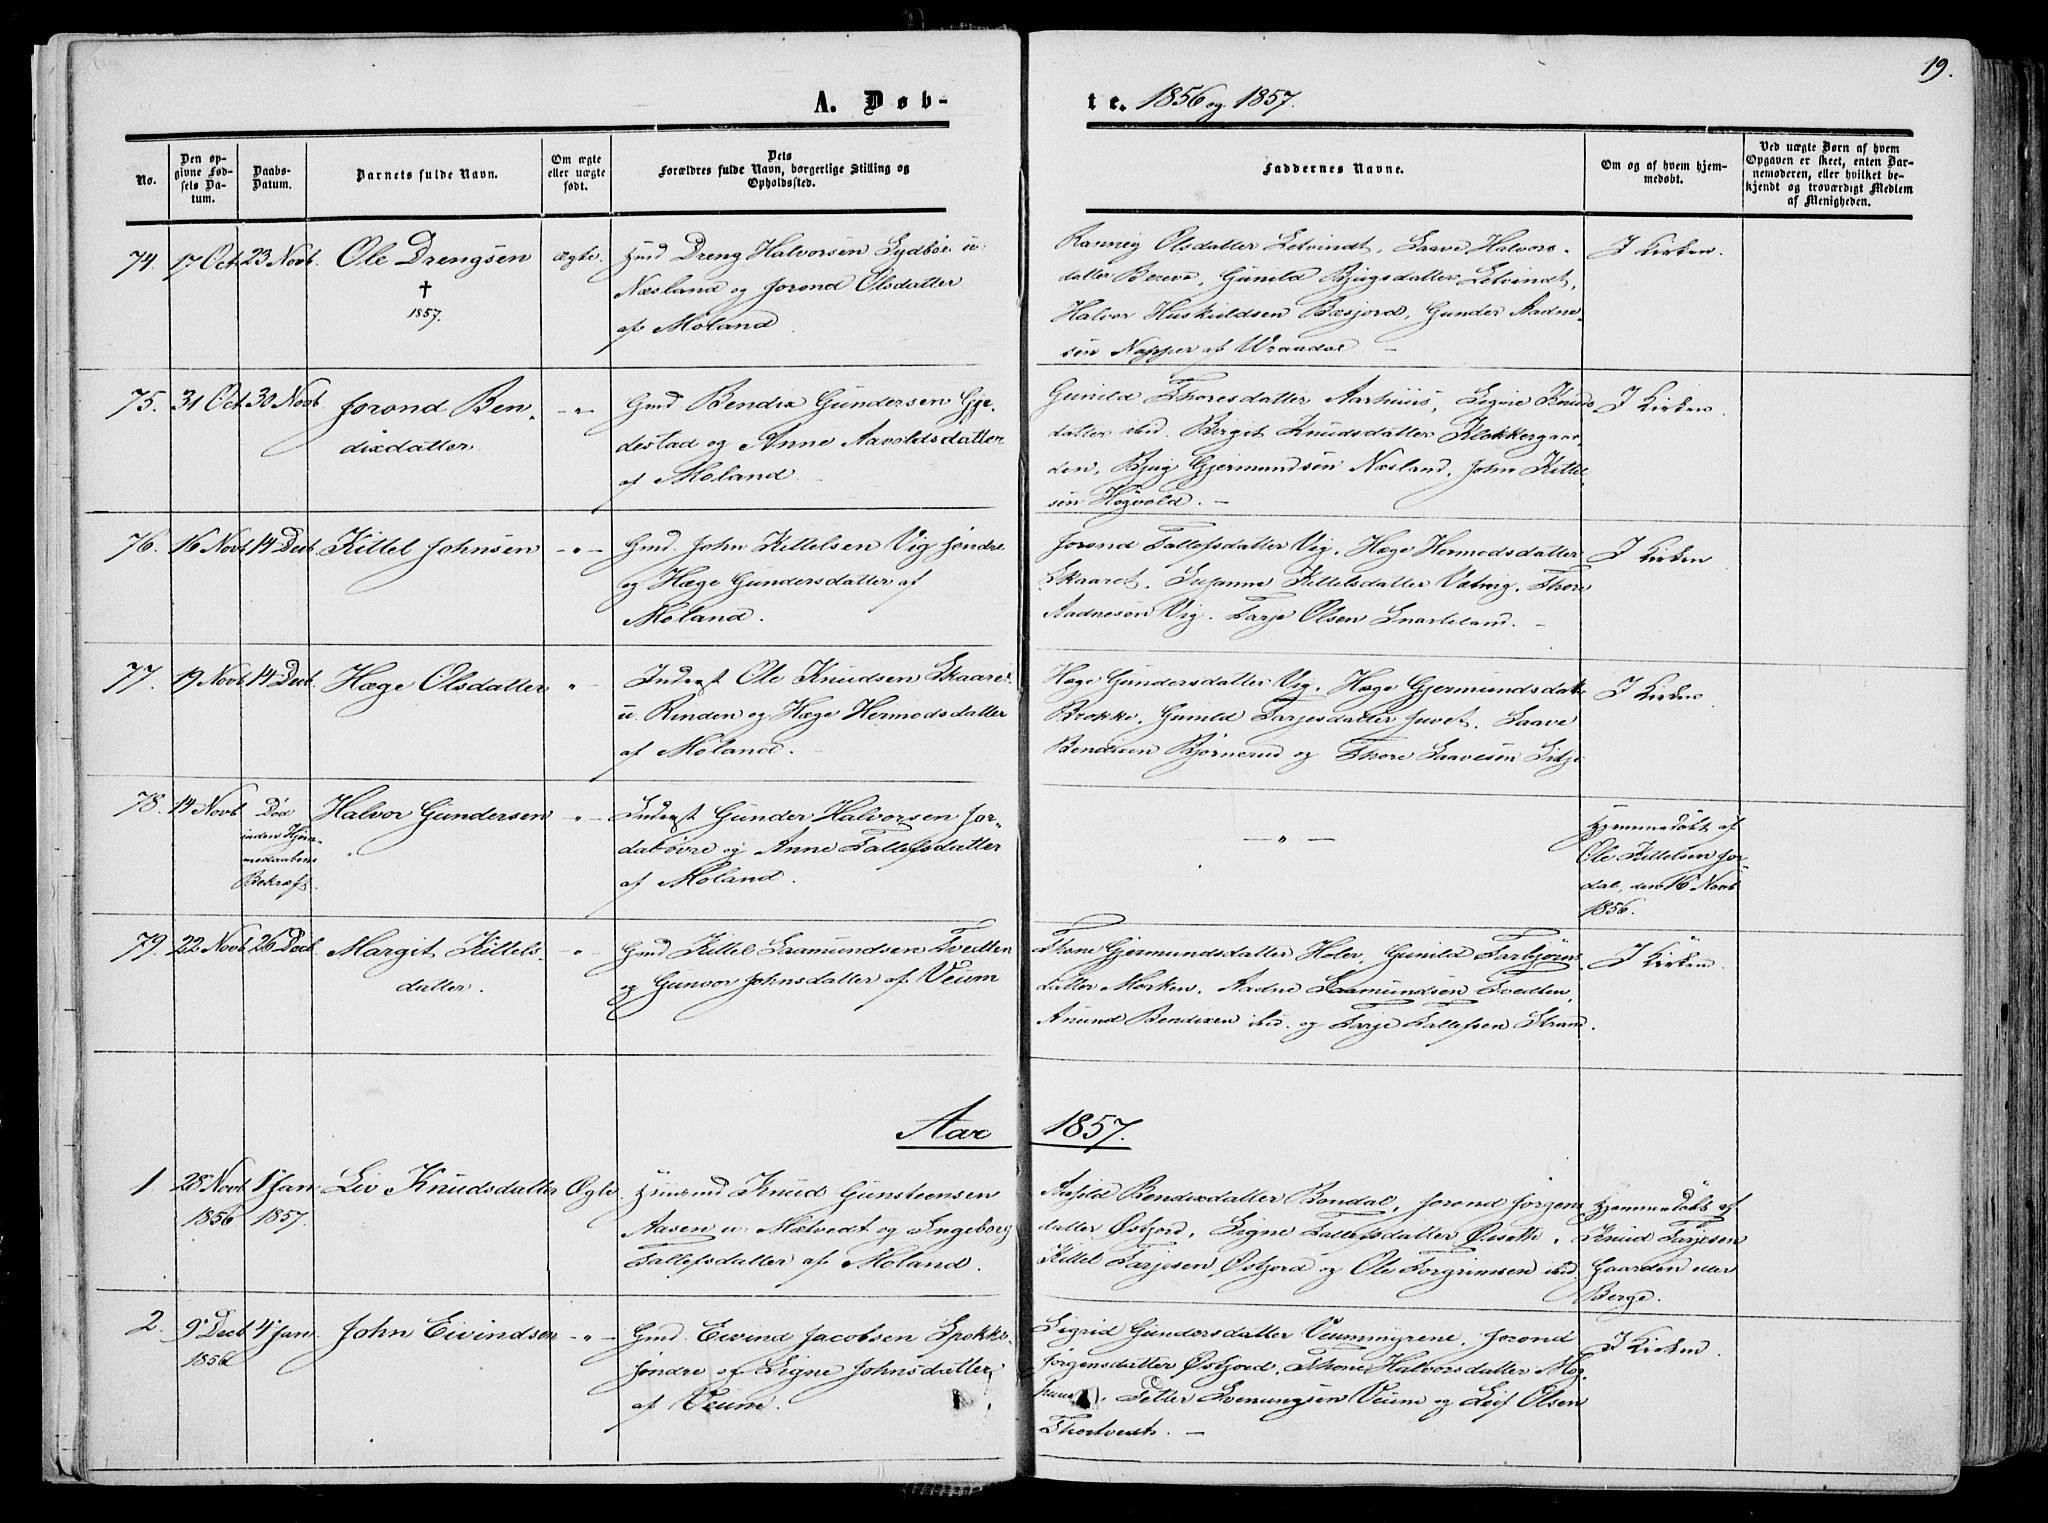 19.
A. Døb-
te. 1856 og 1857.
No.
Den op-
givne Fød-
sels Da-
tum.
Daabs-
Datum.
Barnets fulde Navn.
Om ægte
eller uægte
født.
Dets
Forældres fulde Navn, borgerlige Stilling og
Opholdssted.
Faddernes Navne.
Om og af hvem hjem-
medøbt.
Ved uægte Børn af hvem
Opgaven er skeet, enten Bar-
nemoderen, eller hvilket be-
kjendt og troværdigt Medlem
af Menigheden.
74. 17 Oct. 23 Novb. Ole Drengsen ægte.
†
1857.
Hmd Dreng Halvorsen Lydbøe u:
Næsland og Jorond Olsdatter
af Moland
Ranneig Olsdatter Letvindt, Saave Halvors-
datter Berève, Gunild Bjugsdatter Letvindt,
Halvor Huskuldsen Bæsjord, Gunder Aadne-
sen Napper af Wraadal –
I Kirken.
75. 31 Oct. 30 Novb. Jorond Ben-
dixdatter. –"–
Gmd Bendix Gundersen Gje-
destad og Anne Aavoldsdatter
af Moland.
Gunild Thoresdatter Aarhuus, Signe Knuds
datter ibd. Birgit Knudsdatter Klokkergaar-
den, Bjug Gjermundsen Næsland, John Kittel-
sen Høgvold. –
I Kirken.
76. 16 Novb 14 Decb. Kittel Johnsen –"–
Gmd. John Kittelsen Vig søndre
og Hæge Gundersdatter af
Moland.
Jorond Tallefsdatter Vig, Hæge Hermodsdatter
Skaaret, Susanne Kittelsdatter Vætvig, Thore
Aadnesen Vig, Tarje Olsen Snarteland. –
I Kirken
77. 19 Novb 14 Decb. Hæge Olsdatter "
Inderst Ole Knudsen Skaaret
u. Rinden og Hæge Hermodsdatter
af Moland.
Hæge Gundersdatter Vig, Hæge Gjermundsdatt.
Brokke, Gunild Tarjesdatter Juvet, Saave
Bendixen Bjørnerud og Thore Saavesen
I Kirken
78. 14 Novb Død
inden Hjem-
medaabens
Bekræft.
Halvor Gundersen "
Inderst Gunder Halvorsen Jor-
daløvre og Anne Tallefsdatter
af Moland.
–"–
Hjemmedøbt af
Ole Kittelsen Jor-
dal, den 16 Novb
1856.
79. 22 Novb 26 Decb. Margit Kittels-
datter. "
Gmd Kittel Saamundsen Tvedten
og Gunvor Johnsdatter af Veum
Thone Gjermundsdatter Holer, Gunild Tarbjørns
datter Morken, Aadne Saamundsen Tvedten,
Anund Bendixen ibd. og Tarje Tallefsen Strand.
I Kirken.
Aar 1857.
1 28 Novb 1 Jan. Liv Knudsdatter Ægte.
1856 1857.
Huusmd Knud Gunsteensen
Aasen u: Mætvedt og Ingeborg
Tallefsdatter af Moland.
Aashild Bendixdatter Bondal, Jorond Jørgens
datter Østjord, Signe Tallefsdatter Øiseth,
Kittel Tarjesen Østjord og Ole Torgrimsen ibd.
Hjemmedøbt af
Knud Tarjesen
Gaarden eller
Berge.
2. 9 Decb 4 Jan. John Eivindsen –"–
1856
Gmd. Eivind Jacobsen Spokke-
søndre og Signe Johnsdatter
af Veum.
Sigrid Gundersdatter Veummyrene, Jorond
Jørgensdatter Østjord, Thone Halvorsdatter Mog-
Petter Evenungsen Veum og Leif Olsen
Thortvedt. –
I Kirken.